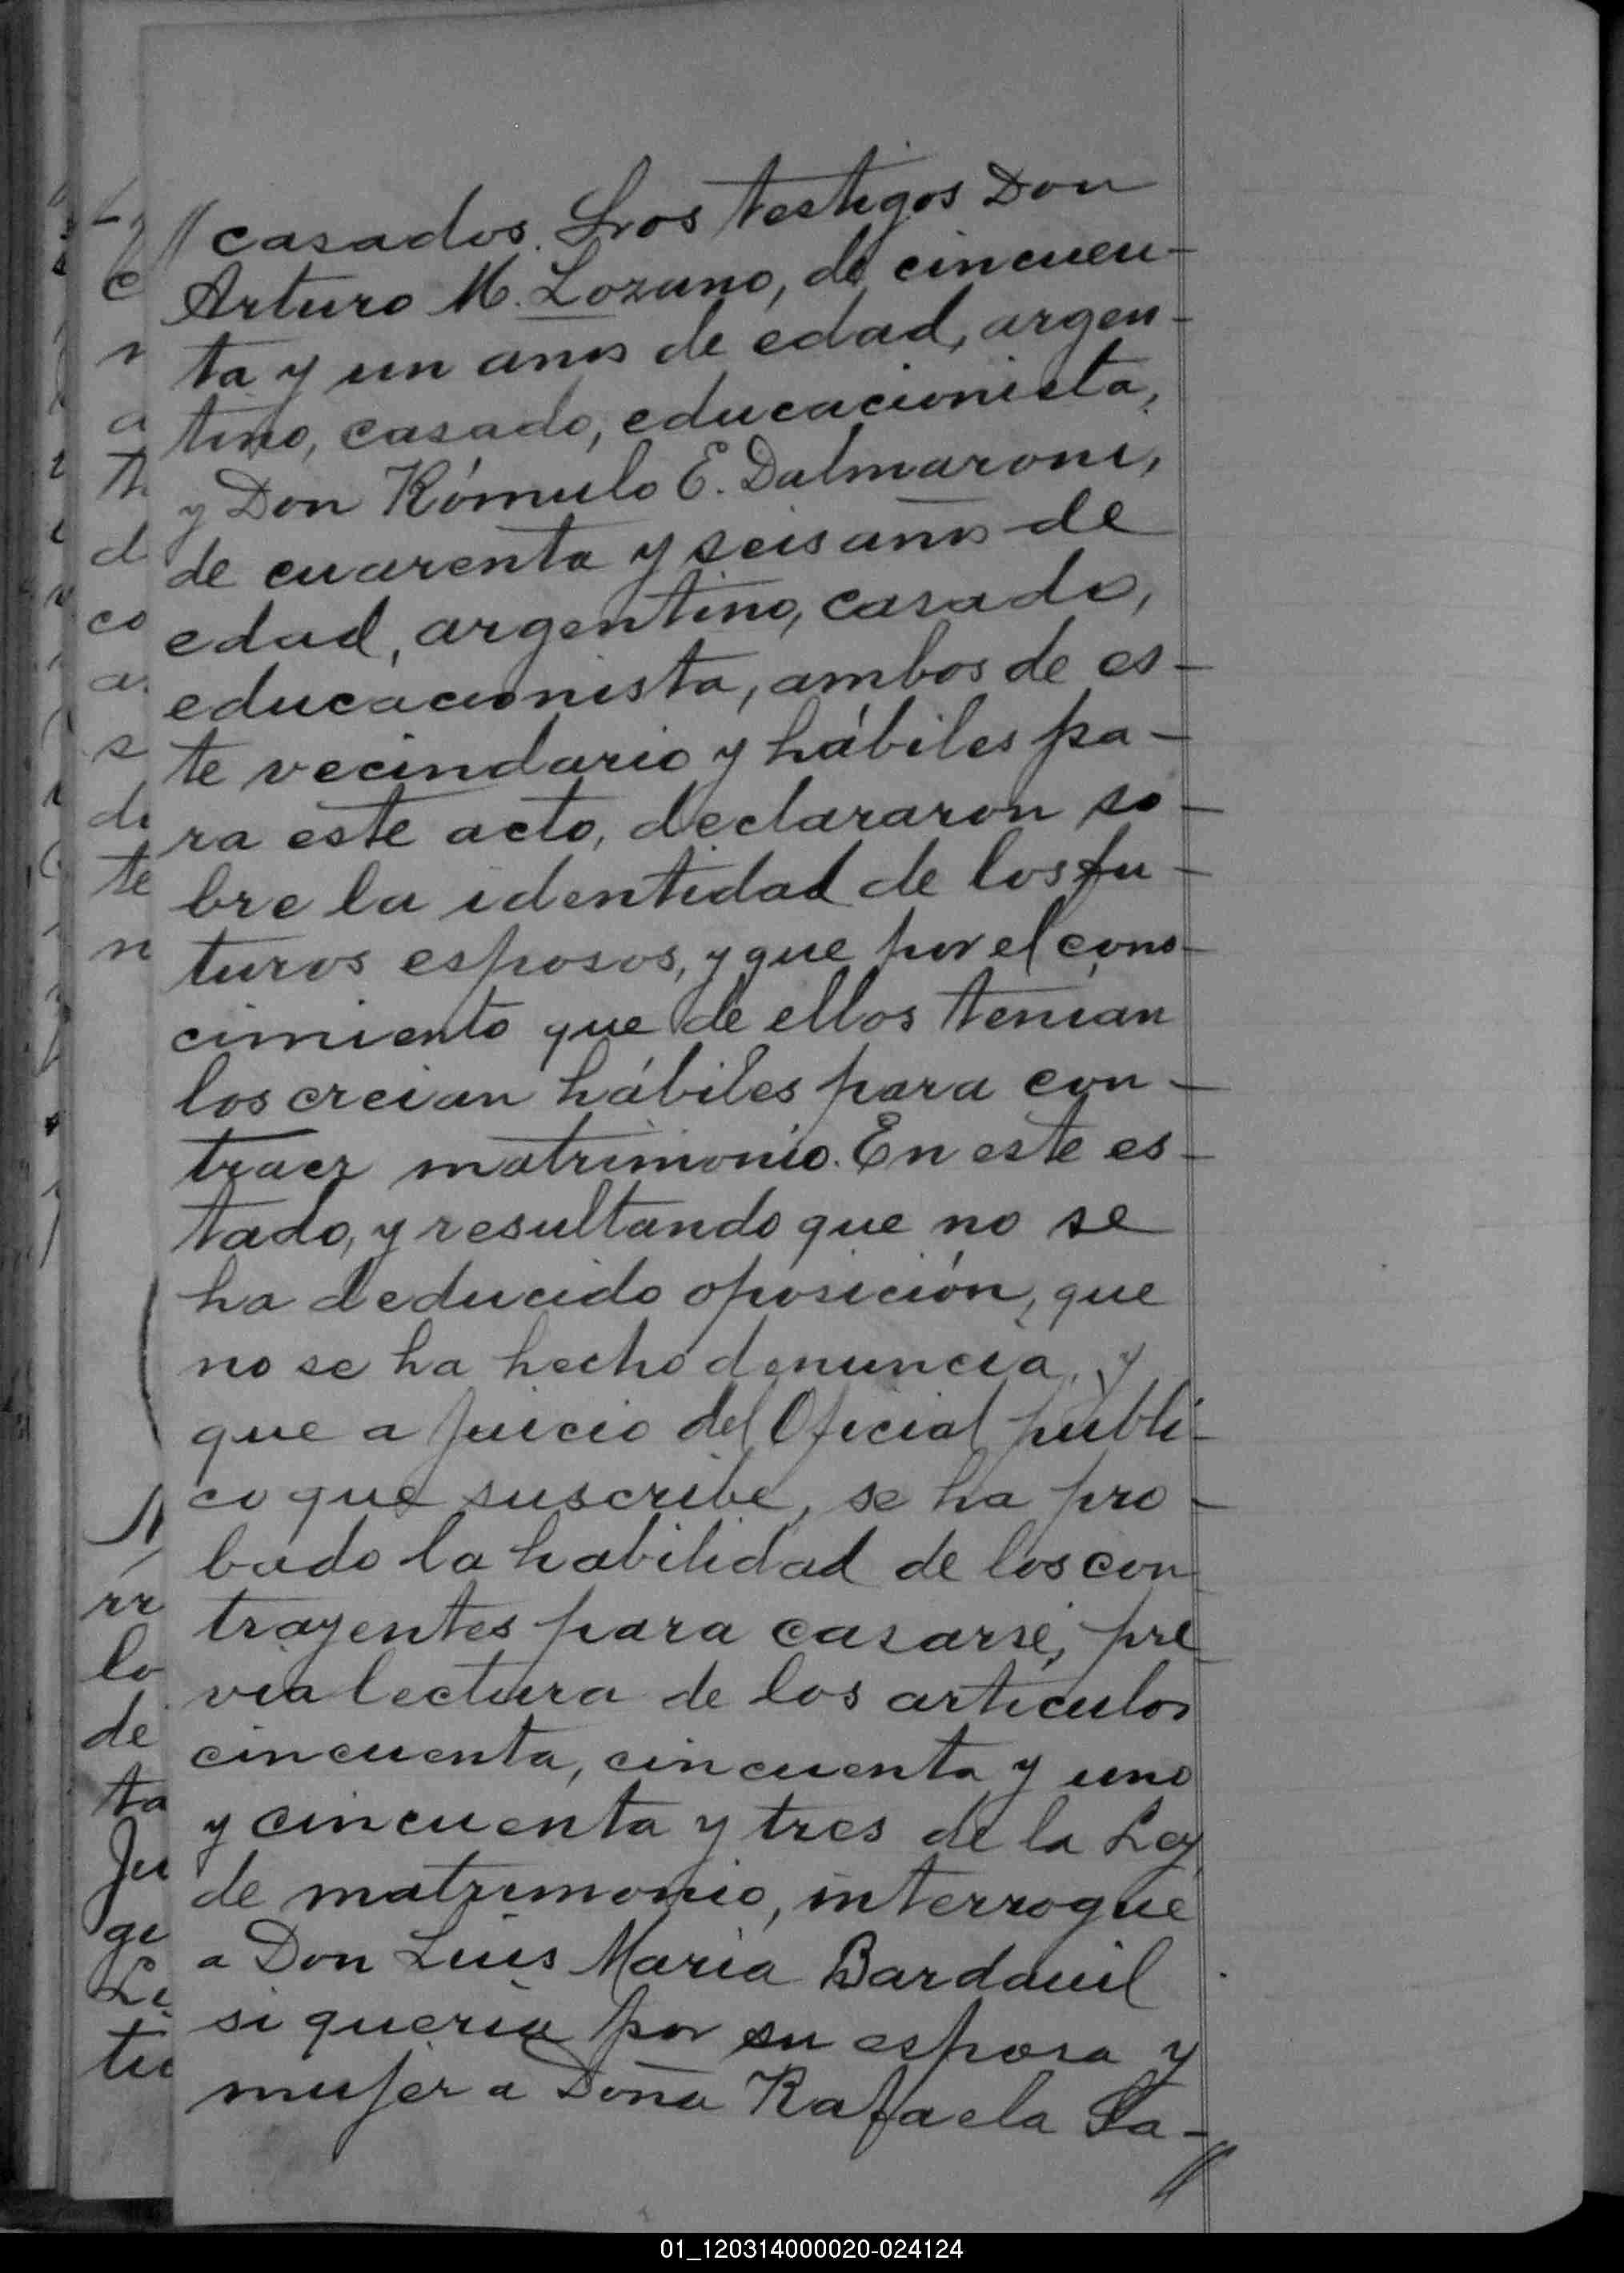 // casados. Los testigos Don
Arturo M. Lozano, de cincuen-
ta y un años de edad, argen-
tino, casado, educacionista,
y Don Rómulo E. Dalmaroni,
de cuarenta y seis años de
edad, argentino, casado,
educacionista, ambos de es-
te vecindario y hábiles pa-
ra este acto, declararon so-
bre la identidad de los fu-
turos esposos, y que por el cono-
cimiento que de ellos tenian
los creian hábiles para con-
traer matrimonio. En este es-
tado, y resultando que no se
ha deducido oposición, que
no se ha hecho denuncia, y
que a juicio del Oficial públi-
co que suscribe, se ha pro-
bado la habilidad de los con
trayentes para casarse, pre
via lectura de los artículos
cincuenta, cincuenta y uno
y cincuenta y tres de la Ley
de matrimonio, interrogué
a Don Luis María Bardauil
si quería por su esposa y
mujer a Doña Rafaela Sa-
//
01_120314000020-024124